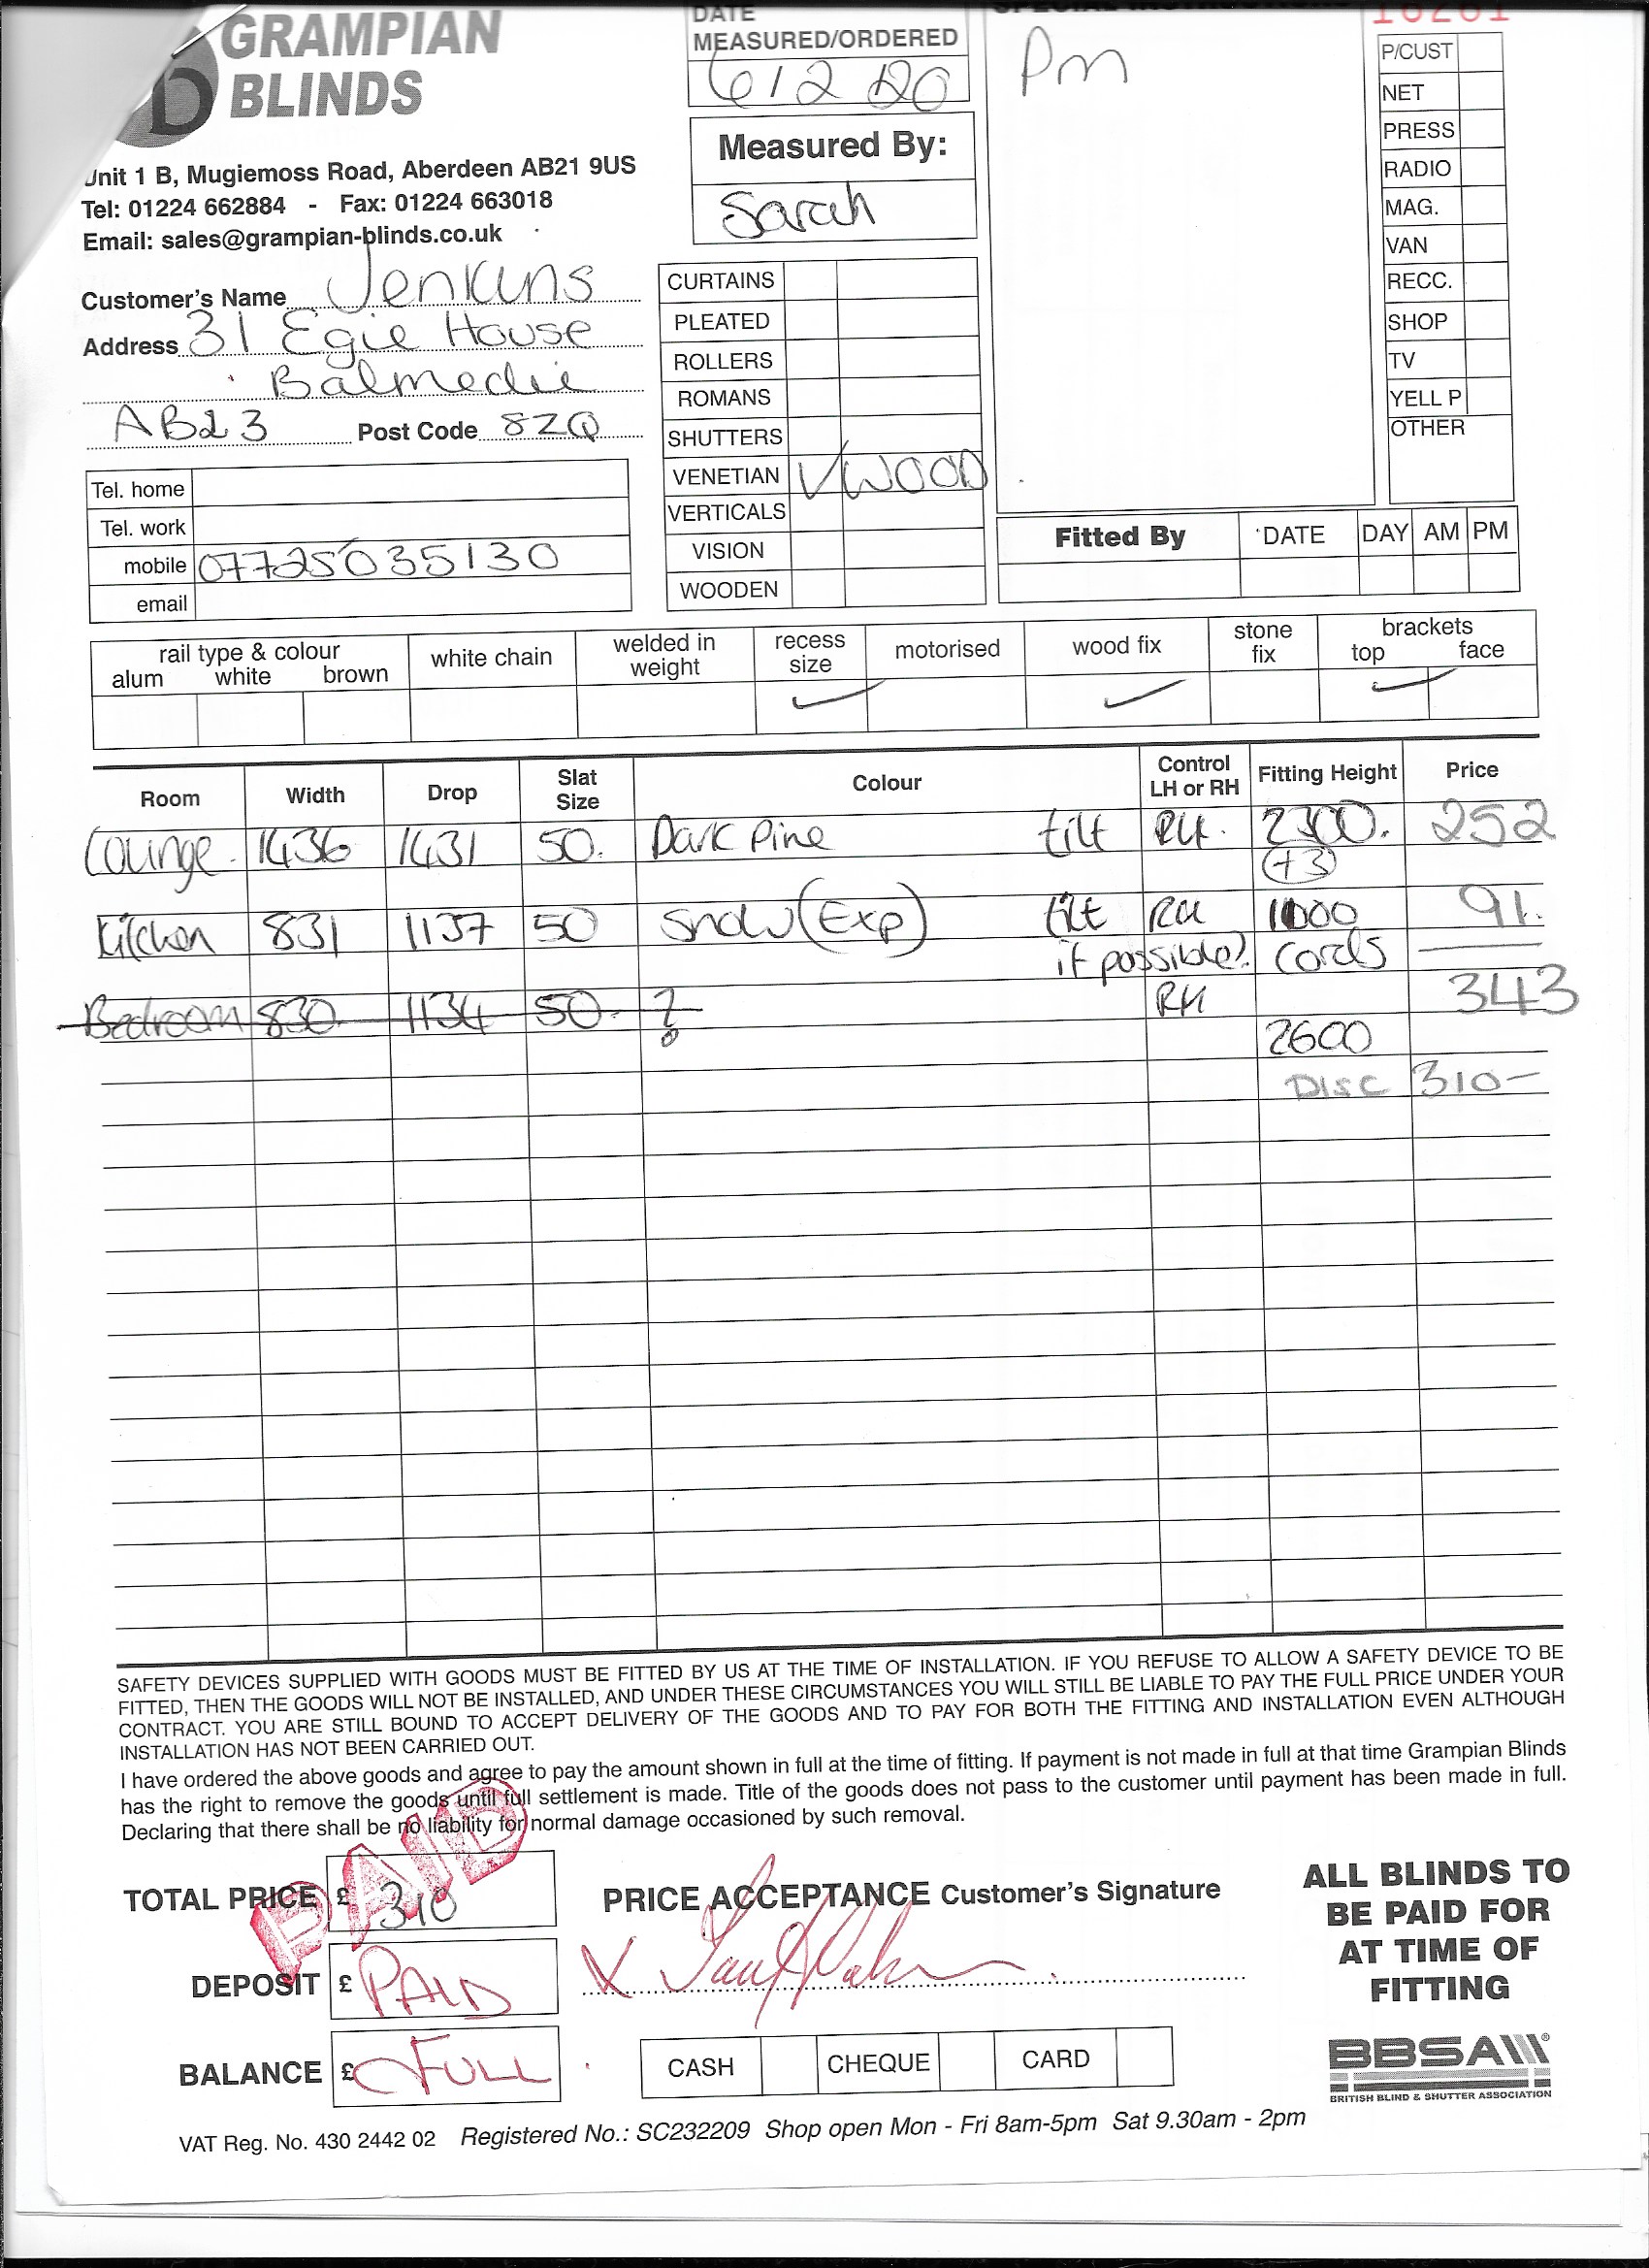 GRAMPIAN
BLINDS
Unit 1 B, Mugiemoss Road, Aberdeen AB21 9US
Tel: 01224 662884 - Fax: 01224 663018
Email: sales@grampian-blinds.co.uk
Customer's Name Jenkins
Address 31 Egie House
Balmedie
AB23 Post Code 8ZQ
Tel. home
Tel. work
mobile 07725035130
email
DATE
MEASURED/ORDERED
6 12 20
Measured By:
Sarah
CURTAINS
PLEATED
ROLLERS
ROMANS
SHUTTERS
VENETIAN ✓ WOOD
VERTICALS
VISION
WOODEN
SPECIAL INSTRUCTIONS
Pm
16261
P/CUST
NET
PRESS
RADIO
MAG.
VAN
RECC.
SHOP
TV
YELL P
OTHER
Fitted By DATE DAY AM PM
rail type & colour
alum white brown
white chain
welded in
weight
recess
size ✓
motorised
wood fix ✓
stone
fix
brackets
top face
✓
Room Width Drop Slat Size Colour Control LH or RH Fitting Height Price
Lounge 1436 1431 50. Dark Pine tilt RH. 2300. 252
(+3)
Kitchen 831 1137 50 Snow (Exp) tilt RH 1000 91.
if possible? Cords
Bedroom 830 1134 50 ? RH 343
2600
DISC 310-
SAFETY DEVICES SUPPLIED WITH GOODS MUST BE FITTED BY US AT THE TIME OF INSTALLATION. IF YOU REFUSE TO ALLOW A SAFETY DEVICE TO BE
FITTED, THEN THE GOODS WILL NOT BE INSTALLED, AND UNDER THESE CIRCUMSTANCES YOU WILL STILL BE LIABLE TO PAY THE FULL PRICE UNDER YOUR
CONTRACT. YOU ARE STILL BOUND TO ACCEPT DELIVERY OF THE GOODS AND TO PAY FOR BOTH THE FITTING AND INSTALLATION EVEN ALTHOUGH
INSTALLATION HAS NOT BEEN CARRIED OUT.
I have ordered the above goods and agree to pay the amount shown in full at the time of fitting. If payment is not made in full at that time Grampian Blinds
has the right to remove the goods until full settlement is made. Title of the goods does not pass to the customer until payment has been made in full.
Declaring that there shall be no liability for normal damage occasioned by such removal.
PAID
TOTAL PRICE £ 310
DEPOSIT £ PAID
BALANCE £ FULL
PRICE ACCEPTANCE Customer's Signature
X
CASH CHEQUE CARD
ALL BLINDS TO
BE PAID FOR
AT TIME OF
FITTING
BBSA
BRITISH BLIND & SHUTTER ASSOCIATION
VAT Reg. No. 430 2442 02 Registered No.: SC232209 Shop open Mon - Fri 8am-5pm Sat 9.30am - 2pm